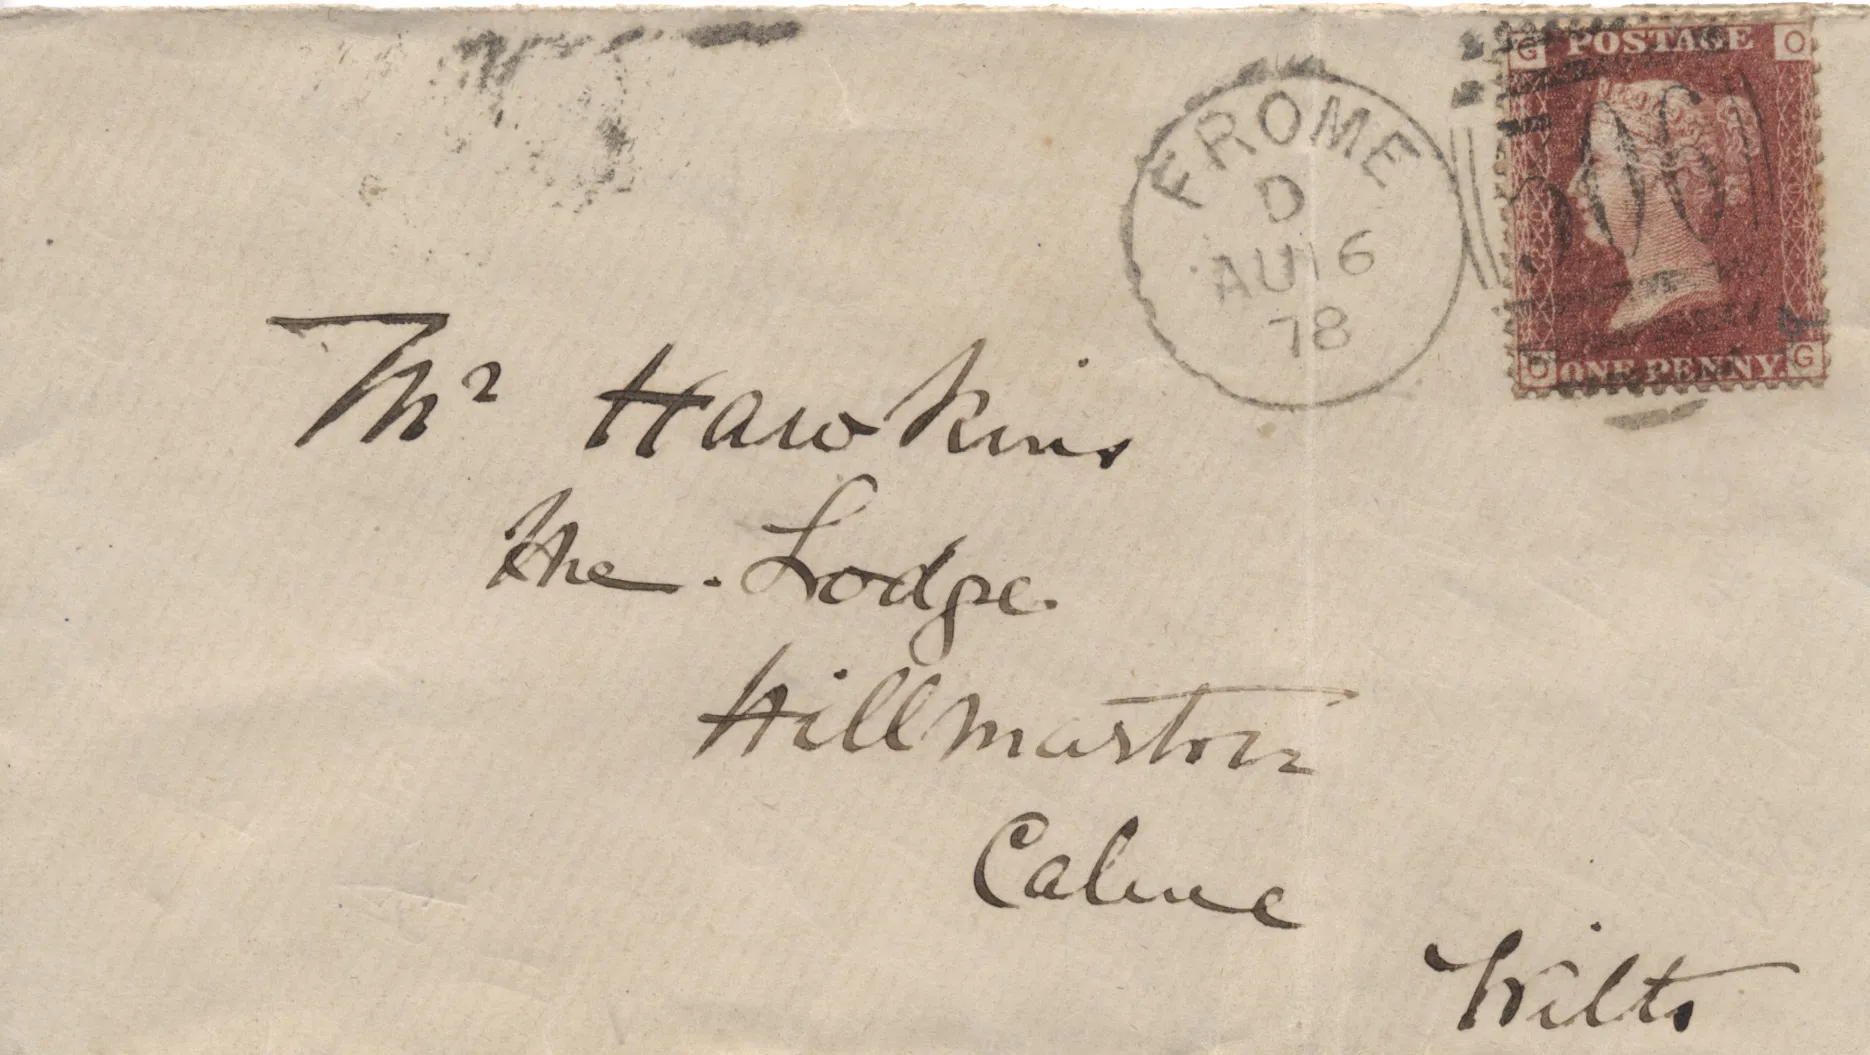 G POSTAGE O
FROME
D
AU 16
78
306
O ONE PENNY G
Mr Hawkins
The Lodge
Hillmarton
Calne
Wilts